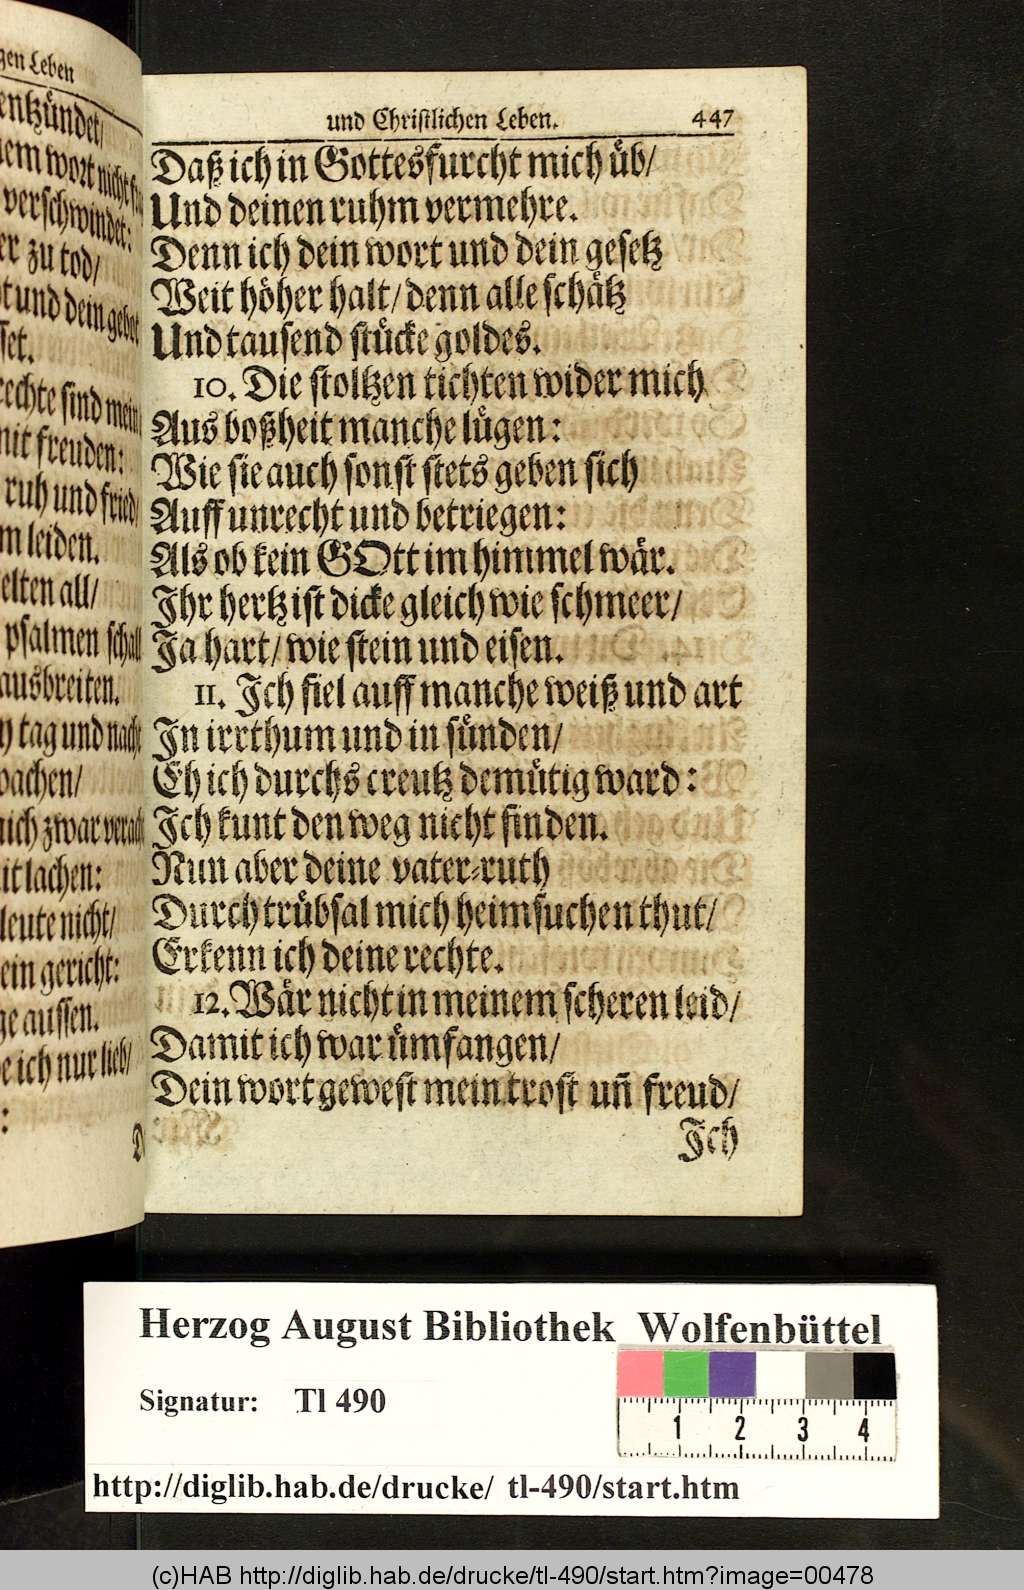 gen Leben
entzündet/
nem wort nicht
verschwindet:
er zu tod/
und dein gebot
set.
rechte sind mein
mit freuden:
ruh und fried/
m leiden.
elten all/
psalmen schall
ausbreiten.
tag und nacht
wachen/
mich zwar veracht
it lachen:
leute nicht/
ein gericht:
ge aussen.
e ich nur lieb/
:
D
und Christlichen Leben. 447
Daß ich in Gottesfurcht mich üb/
Und deinen ruhm vermehre.
Denn ich dein wort und dein gesetz
Weit höher halt/ denn alle schätz
Und tausend stücke goldes.
10. Die stoltzen tichten wider mich
Aus boßheit manche lügen:
Wie sie auch sonst stets geben sich
Auff unrecht und betriegen:
Als ob kein GOtt im himmel wär.
Ihr hertz ist dicke gleich wie schmeer/
Ja hart/ wie stein und eisen.
11. Ich fiel auff manche weiß und art
In irrthum und in sünden/
Eh ich durchs creutz demütig ward:
Ich kunt den weg nicht finden.
Nun aber deine vater-ruth
Durch trübsal mich heimsuchen thut/
Erkenn ich deine rechte.
12. Wär nicht in meinem scheren leid/
Damit ich war ümfangen/
Dein wort gewest mein trost uñ freud/
Ich
Herzog August Bibliothek Wolfenbüttel
Signatur: Tl 490
1 2 3 4
http://diglib.hab.de/drucke/ tl-490/start.htm
(c)HAB http://diglib.hab.de/drucke/tl-490/start.htm?image=00478